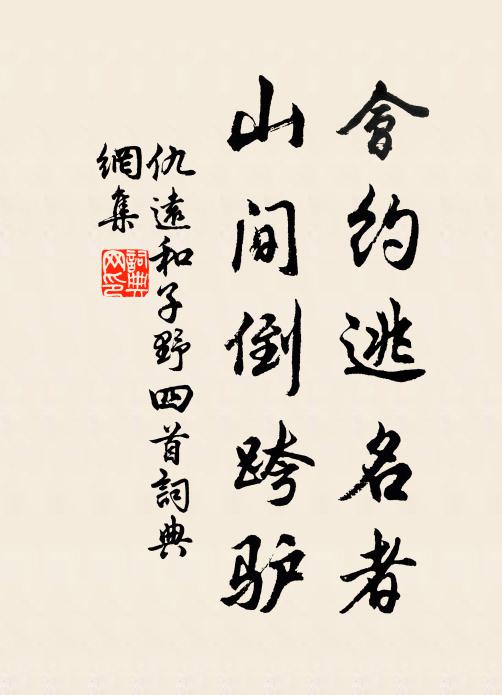 會約逃名者
山间倒跨驴
仇遠和子野四首詞典
網集
詞典
网印